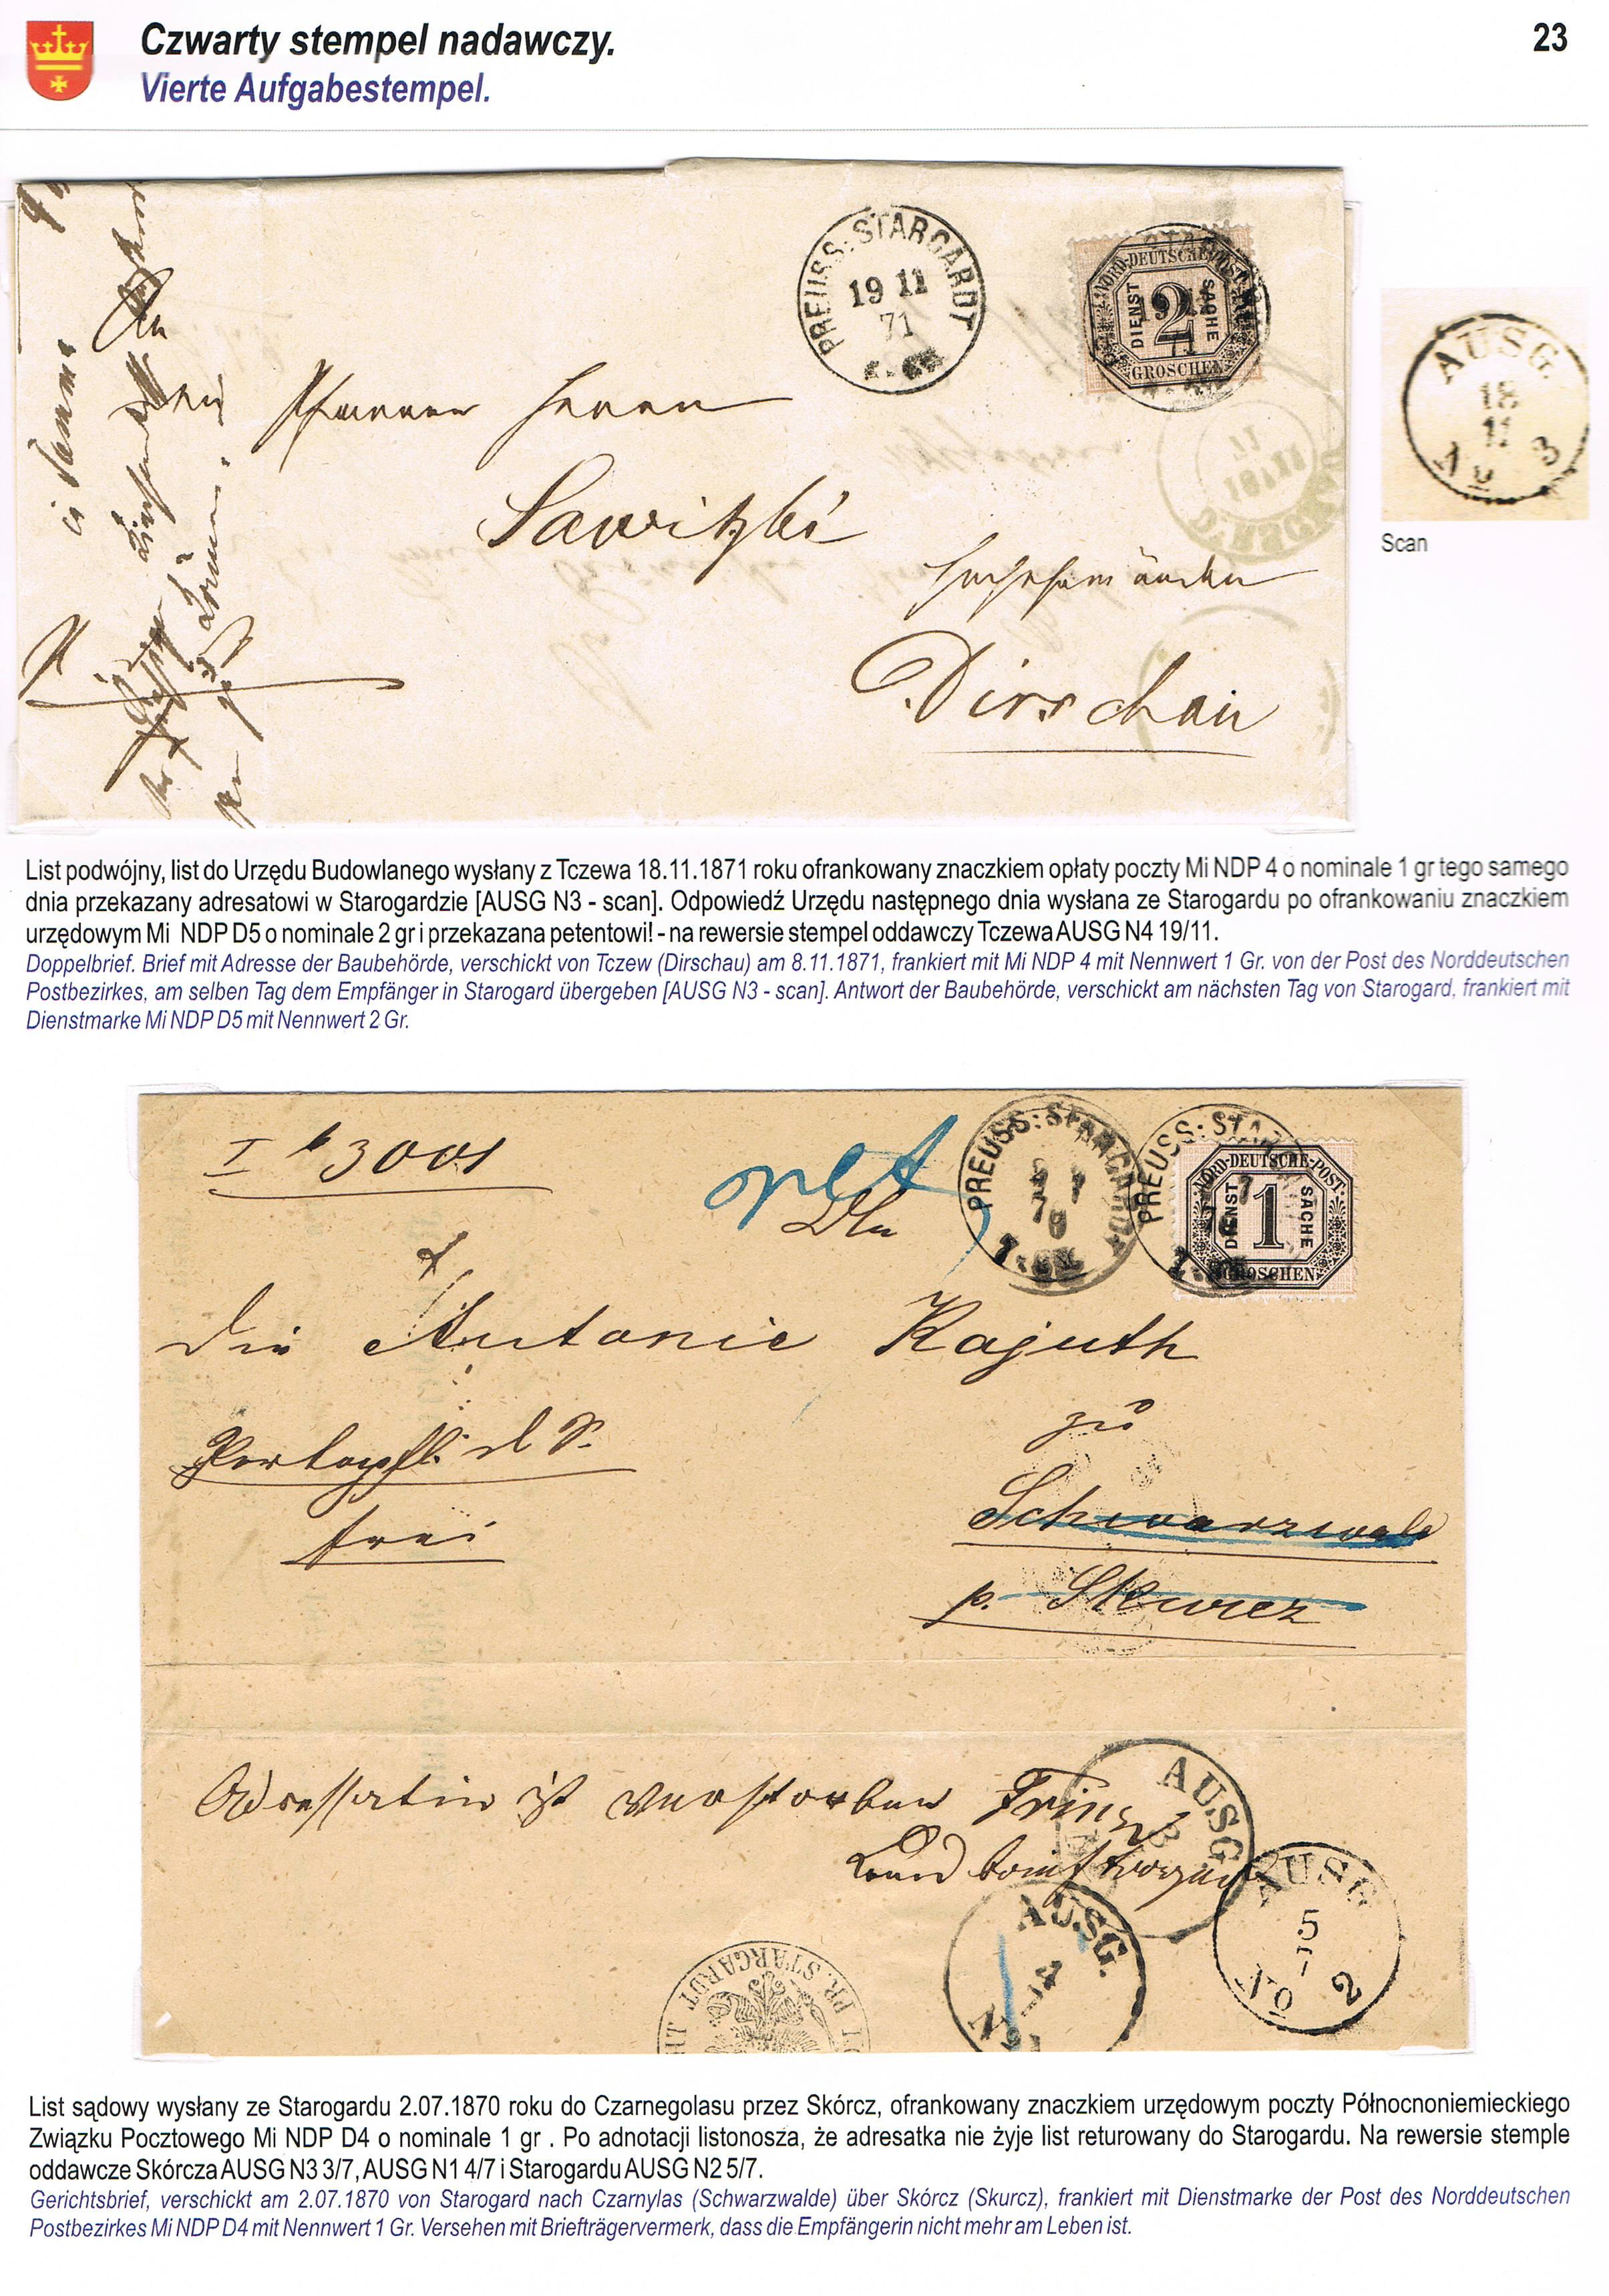 Czwarty stempel nadawczy.
23
Vierte Aufgabestempel.
PREUSS: STARGARDT
19 11
71
NORD-DEUTSCHE-POST
DIENST
2
SACHE
GROSCHEN
An
den
Pfarrer Herrn
Sawitzki
Dirschau
AUSG.
18
11
No 3
Scan
List podwójny, list do Urzędu Budowlanego wysłany z Tczewa 18.11.1871 roku ofrankowany znaczkiem opłaty poczty Mi NDP 4 o nominale 1 gr tego samego
dnia przekazany adresatowi w Starogardzie [AUSG N3 - scan]. Odpowiedź Urzędu następnego dnia wysłana ze Starogardu po ofrankowaniu znaczkiem
urzędowym Mi NDP D5 o nominale 2 gr i przekazana petentowi! - na rewersie stempel oddawczy Tczewa AUSG N4 19/11.
Doppelbrief. Brief mit Adresse der Baubehörde, verschickt von Tczew (Dirschau) am 8.11.1871, frankiert mit Mi NDP 4 mit Nennwert 1 Gr. von der Post des Norddeutschen
Postbezirkes, am selben Tag dem Empfänger in Starogard übergeben [AUSG N3 - scan]. Antwort der Baubehörde, verschickt am nächsten Tag von Starogard, frankiert mit
Dienstmarke Mi NDP D5 mit Nennwert 2 Gr.
I b 3001
PREUSS: STARGARDT
PREUSS: STAR
NORD-DEUTSCHE-POST
DIENST
1
SACHE
GROSCHEN
die Antonie Kajuth
zu
Portopfl. d S.
frei
Schwarzwald
p. Skurcz
Adressatin ist verstorben
AUSG
3
AUSG.
4
AUSG
5
7
No 2
PR. STARGARDT
List sądowy wysłany ze Starogardu 2.07.1870 roku do Czarnegolasu przez Skórcz, ofrankowany znaczkiem urzędowym poczty Północnoniemieckiego
Związku Pocztowego Mi NDP D4 o nominale 1 gr . Po adnotacji listonosza, że adresatka nie żyje list returowany do Starogardu. Na rewersie stemple
oddawcze Skórcza AUSG N3 3/7, AUSG N1 4/7 i Starogardu AUSG N2 5/7.
Gerichtsbrief, verschickt am 2.07.1870 von Starogard nach Czarnylas (Schwarzwalde) über Skórcz (Skurcz), frankiert mit Dienstmarke der Post des Norddeutschen
Postbezirkes Mi NDP D4 mit Nennwert 1 Gr. Versehen mit Briefträgervermerk, dass die Empfängerin nicht mehr am Leben ist.